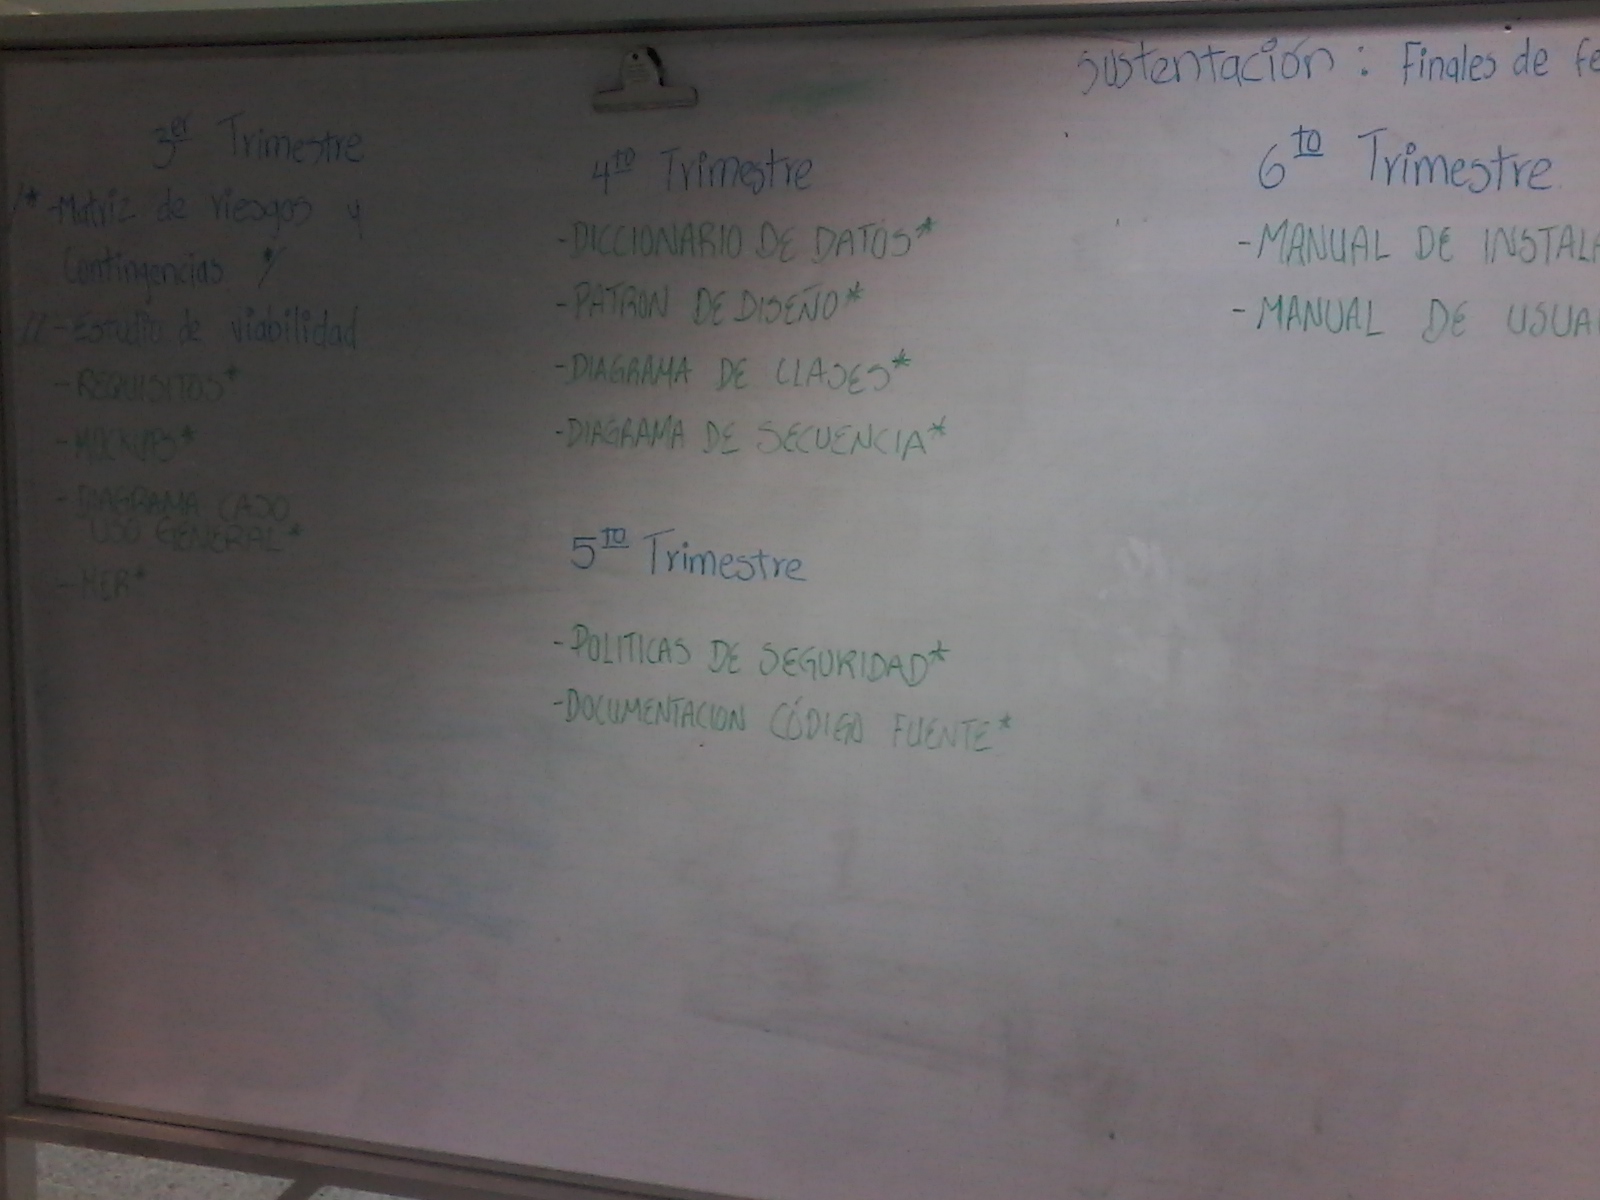 Sustentación : Finales de fe
3er Trimestre
/* -Matriz de riesgos y
Contingencias */
// -Estudio de viabilidad
-REQUISITOS*
-MOCKUPS*
-DIAGRAMA CASO
USO GENERAL*
-MER*
4to Trimestre
-DICCIONARIO DE DATOS*
-PATRON DE DISEÑO*
-DIAGRAMA DE CLASES*
-DIAGRAMA DE SECUENCIA*
5to Trimestre
-POLITICAS DE SEGURIDAD*
-DOCUMENTACION CÓDIGO FUENTE*
6to Trimestre
-MANUAL DE INSTALA
-MANUAL DE USUA